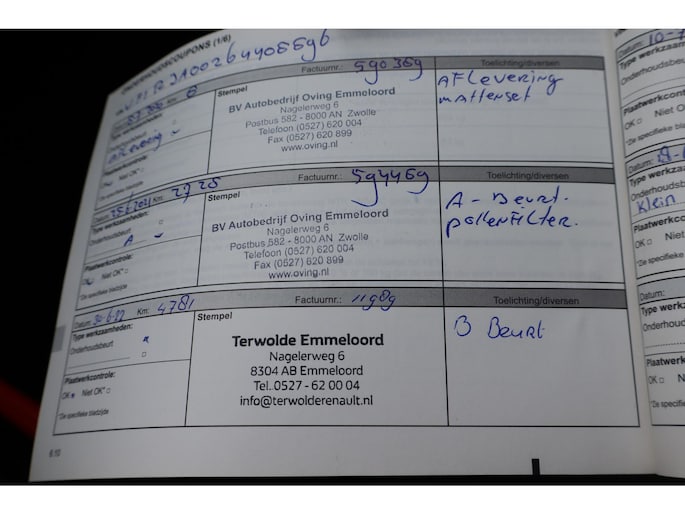 ONDERHOUDSCOUPONS (1/6)
Km: 0
Factuurnr.: 590369
Toelichting/diversen
Stempel
BV Autobedrijf Oving Emmeloord
Nagelerweg 6
Postbus 582 - 8000 AN Zwolle
Telefoon (0527) 620 004
Fax (0527) 620 899
www.oving.nl
AFLEVERING
MATTENSET
Onderhoudsbeurt
Aflevering
Plaatwerkcontrole:
Niet OK*
*De specifieke bladzijde
Datum: Km: 2728
Factuurnr.: 594469
Toelichting/diversen
Type werkzaamheden:
Onderhoudsbeurt
A
Plaatwerkcontrole:
Niet OK*
*De specifieke bladzijde
Stempel
BV Autobedrijf Oving Emmeloord
Nagelerweg 6
Postbus 582 - 8000 AN Zwolle
Telefoon (0527) 620 004
Fax (0527) 620 899
www.oving.nl
A - Beurt.
pollenfilter.
Datum: 30-6-22 Km: 4781
Factuurnr.: 11989
Toelichting/diversen
Type werkzaamheden:
Onderhoudsbeurt
Plaatwerkcontrole:
OK Niet OK*
*De specifieke bladzijde
Stempel
Terwolde Emmeloord
Nagelerweg 6
8304 AB Emmeloord
Tel. 0527 - 62 00 04
info@terwolderenault.nl
B Beurt
6.10
Datum:
Type werkzaam
Onderhoudsbeu
Plaatwerkcontro
OK Niet O
*De specifieke b
Datum:
Type werkz
Onderhoudsb
Klein
Plaatwerkcon
OK Nie
*De specifieke
Datum:
Type werkz
Onderhoud
Plaatwerk
OK
*De specifi